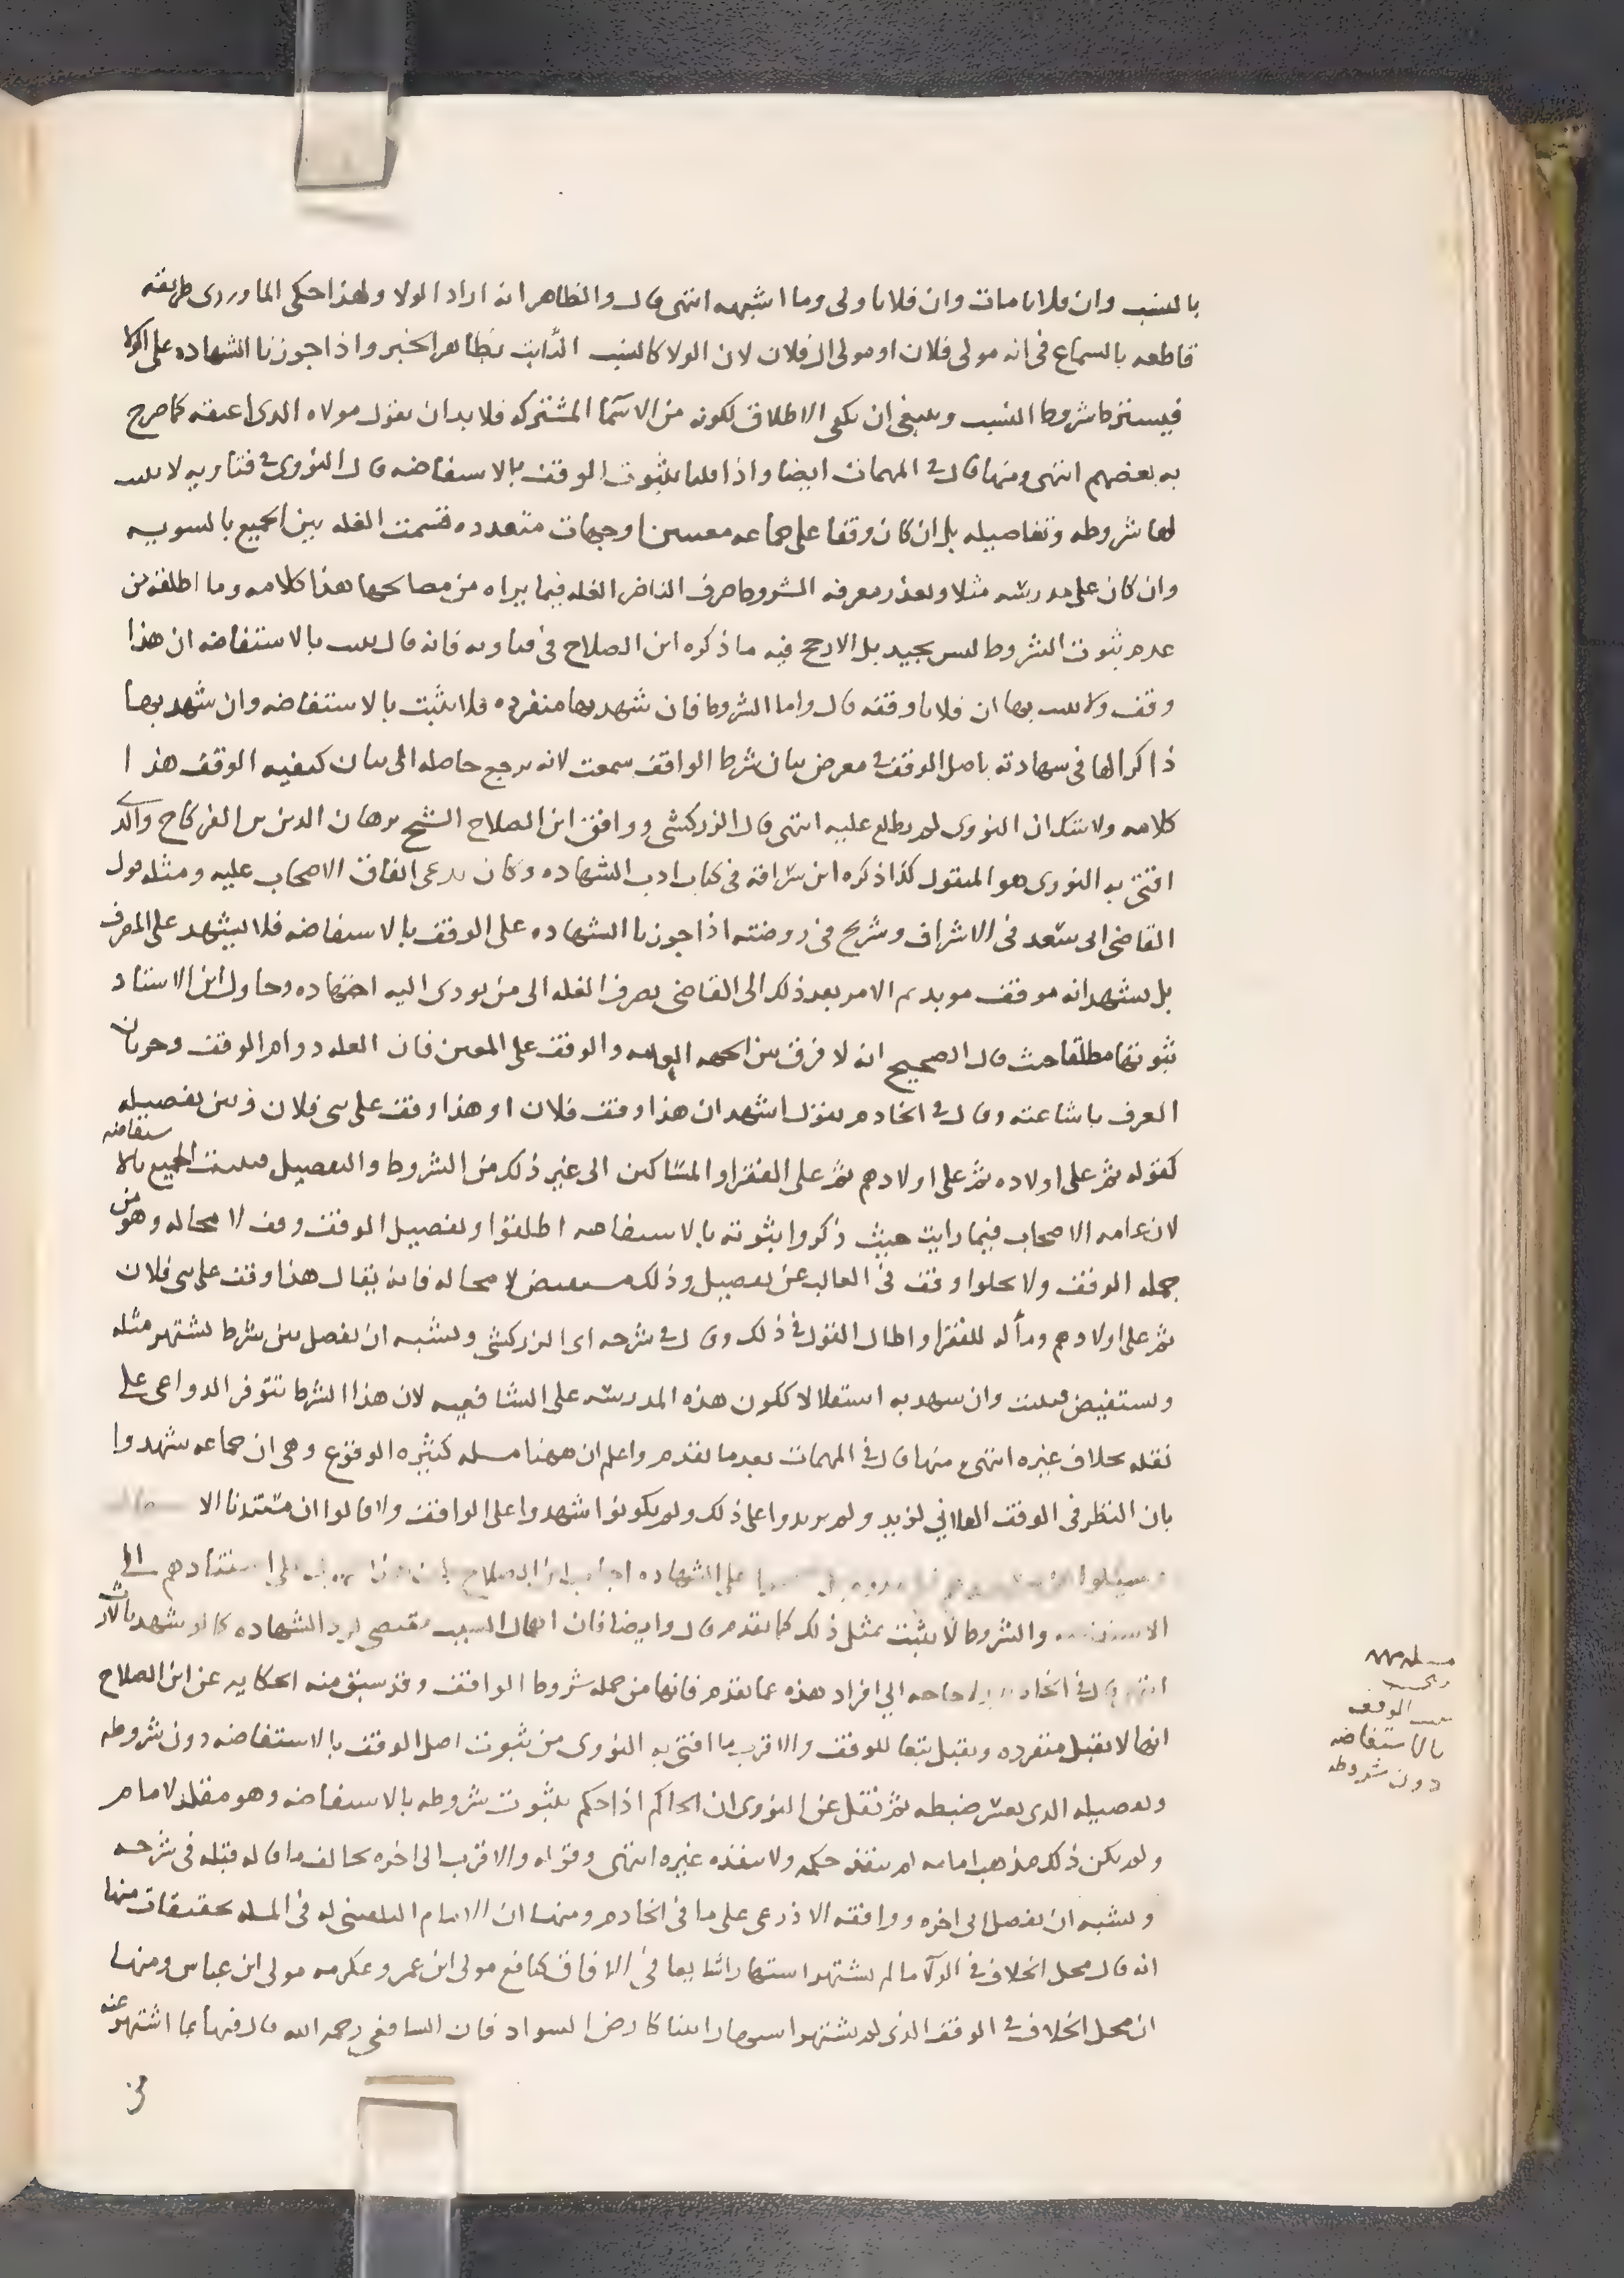 بالنسب وان فلانا مات وان فلانا ولى وما اشبهه انتهى قال والظاهر انه اراد الولا ولهذا حكى الماوردى طريقه
قاطعه بالسماع فى انه مولى فلان او مولى ال فلان لان الولا كالنسب الثابت بظاهر الخبر واذا جوزنا الشهاده على الولا
فيشترط شروط النسب وينبغى ان يكفى الاطلاق لكونه من الاسما المشتركه فلا بد ان يقول مولاه الذى اعتقه كما صرح
به بعضهم انتهى ومنها قال فى المهمات ايضا واذا قلنا بثبوت الوقف بالاستفاضه قال النووى فى فتاويه لا يثبت
لها شروطه وتفاصيله بل ان كان وقفا على جماعه معينين او جهات متعدده قسمت الغله بين الجميع بالسويه
وان كان على مدرسه مثلا وتعذر معرفه الشروط صرف الناظر الغله فيما يراه من مصالحها هذا كلامه وما اطلقه من
عدم ثبوت الشروط ليس بجيد بل الارجح فيه ما ذكره ابن الصلاح فى فتاويه فانه قال يثبت بالاستفاضه ان هذا
وقف ولا يثبت بها ان فلانا وقفه قال واما الشروط فان شهد بها منفرده فلا تثبت بالاستفاضه وان شهد بها
ذاكرا لها فى شهادته باصل الوقف فى معرض بيان شرط الواقف سمعت لانه يرجع حاصله الى بيان كيفيه الوقف هذا
كلامه ولا شك ان النووى لم يطلع عليه انتهى قال الزركشى ووافق ابن الصلاح الشيخ برهان الدين بن الفركاح والذى
افتى به النووى هو المنقول كذا ذكره ابن سراقه فى كتاب ادب الشهاده وكان يدعى اتفاق الاصحاب عليه ومثله قول
القاضى ابى سعد فى الاشراف وشريح فى روضته اذا جوزنا الشهاده على الوقف بالاستفاضه فلا يشهد على المصرف
بل يشهد انه موقف موبد ثم الامر بعد ذلك الى القاضى يصرف الغله الى من يودى اليه اجتهاده وحاول ابن الاستاد
ثبوتها مطلقا حيث قال الصحيح انه لا فرق بين الجهه العامه والوقف على المعين فان العله دوام الوقف وجريان
العرف باشاعته وقال فى الخادم يقول اشهد ان هذا وقف فلان او هذا وقف على بنى فلان وبين تفصيله
كقوله ثم على اولاده ثم على اولادهم ثم على الفقرا والمساكين الى غير ذلك من الشروط والتفصيل فيثبت الجميع بالاستفاضه
لان عامه الاصحاب فيما رايت حيث ذكروا ثبوته بالاستفاضه اطلقوا وتفصيل الوقف وقف لا محاله وهو من
جمله الوقف ولا يخلوا وقف فى الغالب عن تفصيل وذلك مستفيض لا محاله فانه يقال هذا وقف على بنى فلان
ثم على اولادهم ومأله للفقرا واطال القول فى ذلك وقال فى شرحه اى الزركشى ويشبه ان يفصل بين شرط يشتهر مثله
ويستفيض فيثبت وان شهد به استقلالا ككون هذه المدرسه على الشافعيه لان هذا الشرط تتوفر الدواعى على
نقله بخلاف غيره انتهى منها قال فى المهمات بعد ما تقدم واعلم ان ههنا مسله كثيره الوقوع وهى ان جماعه شهدوا
بان النظر فى الوقف الفلانى لزيد ولم يزيدوا على ذلك ولم يكونوا شهدوا على الواقف ولا قالوا ان مستندنا الا
على الشهاده اجاب ابن الصلاح استنادهم الى
والشروط لا تثبت بمثل ذلك كما تقدم قال وايضا فان اهمال السبب مقتضى لرد الشهاده كما لو شهد بالارث
انتهى قال فى الخادم ولا حاجه الى افراد هذه عما تقدم فانها من جمله شروط الواقف وقد سبق منه الحكايه عن ابن الصلاح
انها لا تقبل منفرده وتقبل تبعا للوقف والاقرب ما افتى به النووى من ثبوت اصل الوقف بالاستفاضه دون شروطه
وتفصيله الذى يعسر ضبطه ثم نقل عن النووى ان الحاكم اذا حكم بثبوت شروطه بالاستفاضه وهو مقلد لامام
ولم يكن ذلك مذهب امامه لم ينفذ حكمه ولا ينفذه غيره انتهى وقوله والاقرب الى اخره يخالف ما قاله قبله فى شرحه
ويشبه ان يفصل الى اخره ووافقه الاذرعى على ما فى الخادم ومنها ان الامام البلقينى له فى المسله تحقيقات منها
انه قال محل الخلاف فى الولا ما لم يشتهر اشتهارا شايعا فى الافاق كنافع مولى ابن عمر وعكرمه مولى ابن عباس ومنها
ان محل الخلاف فى الوقف الذى لم يشتهر اشتهارا بينا كارض السواد فان الشافعى رحمه الله قال فيها بما اشتهر عنه
فى
مسله
الوقف
بالاستفاضه
دون شروطه